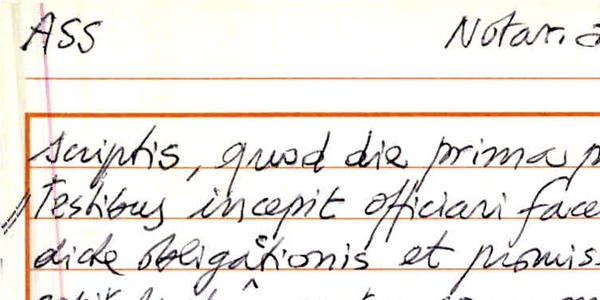 ASS Notar.
scriptis, quod die prima
Testibus incepit officiari face
dicte obligationis et promis